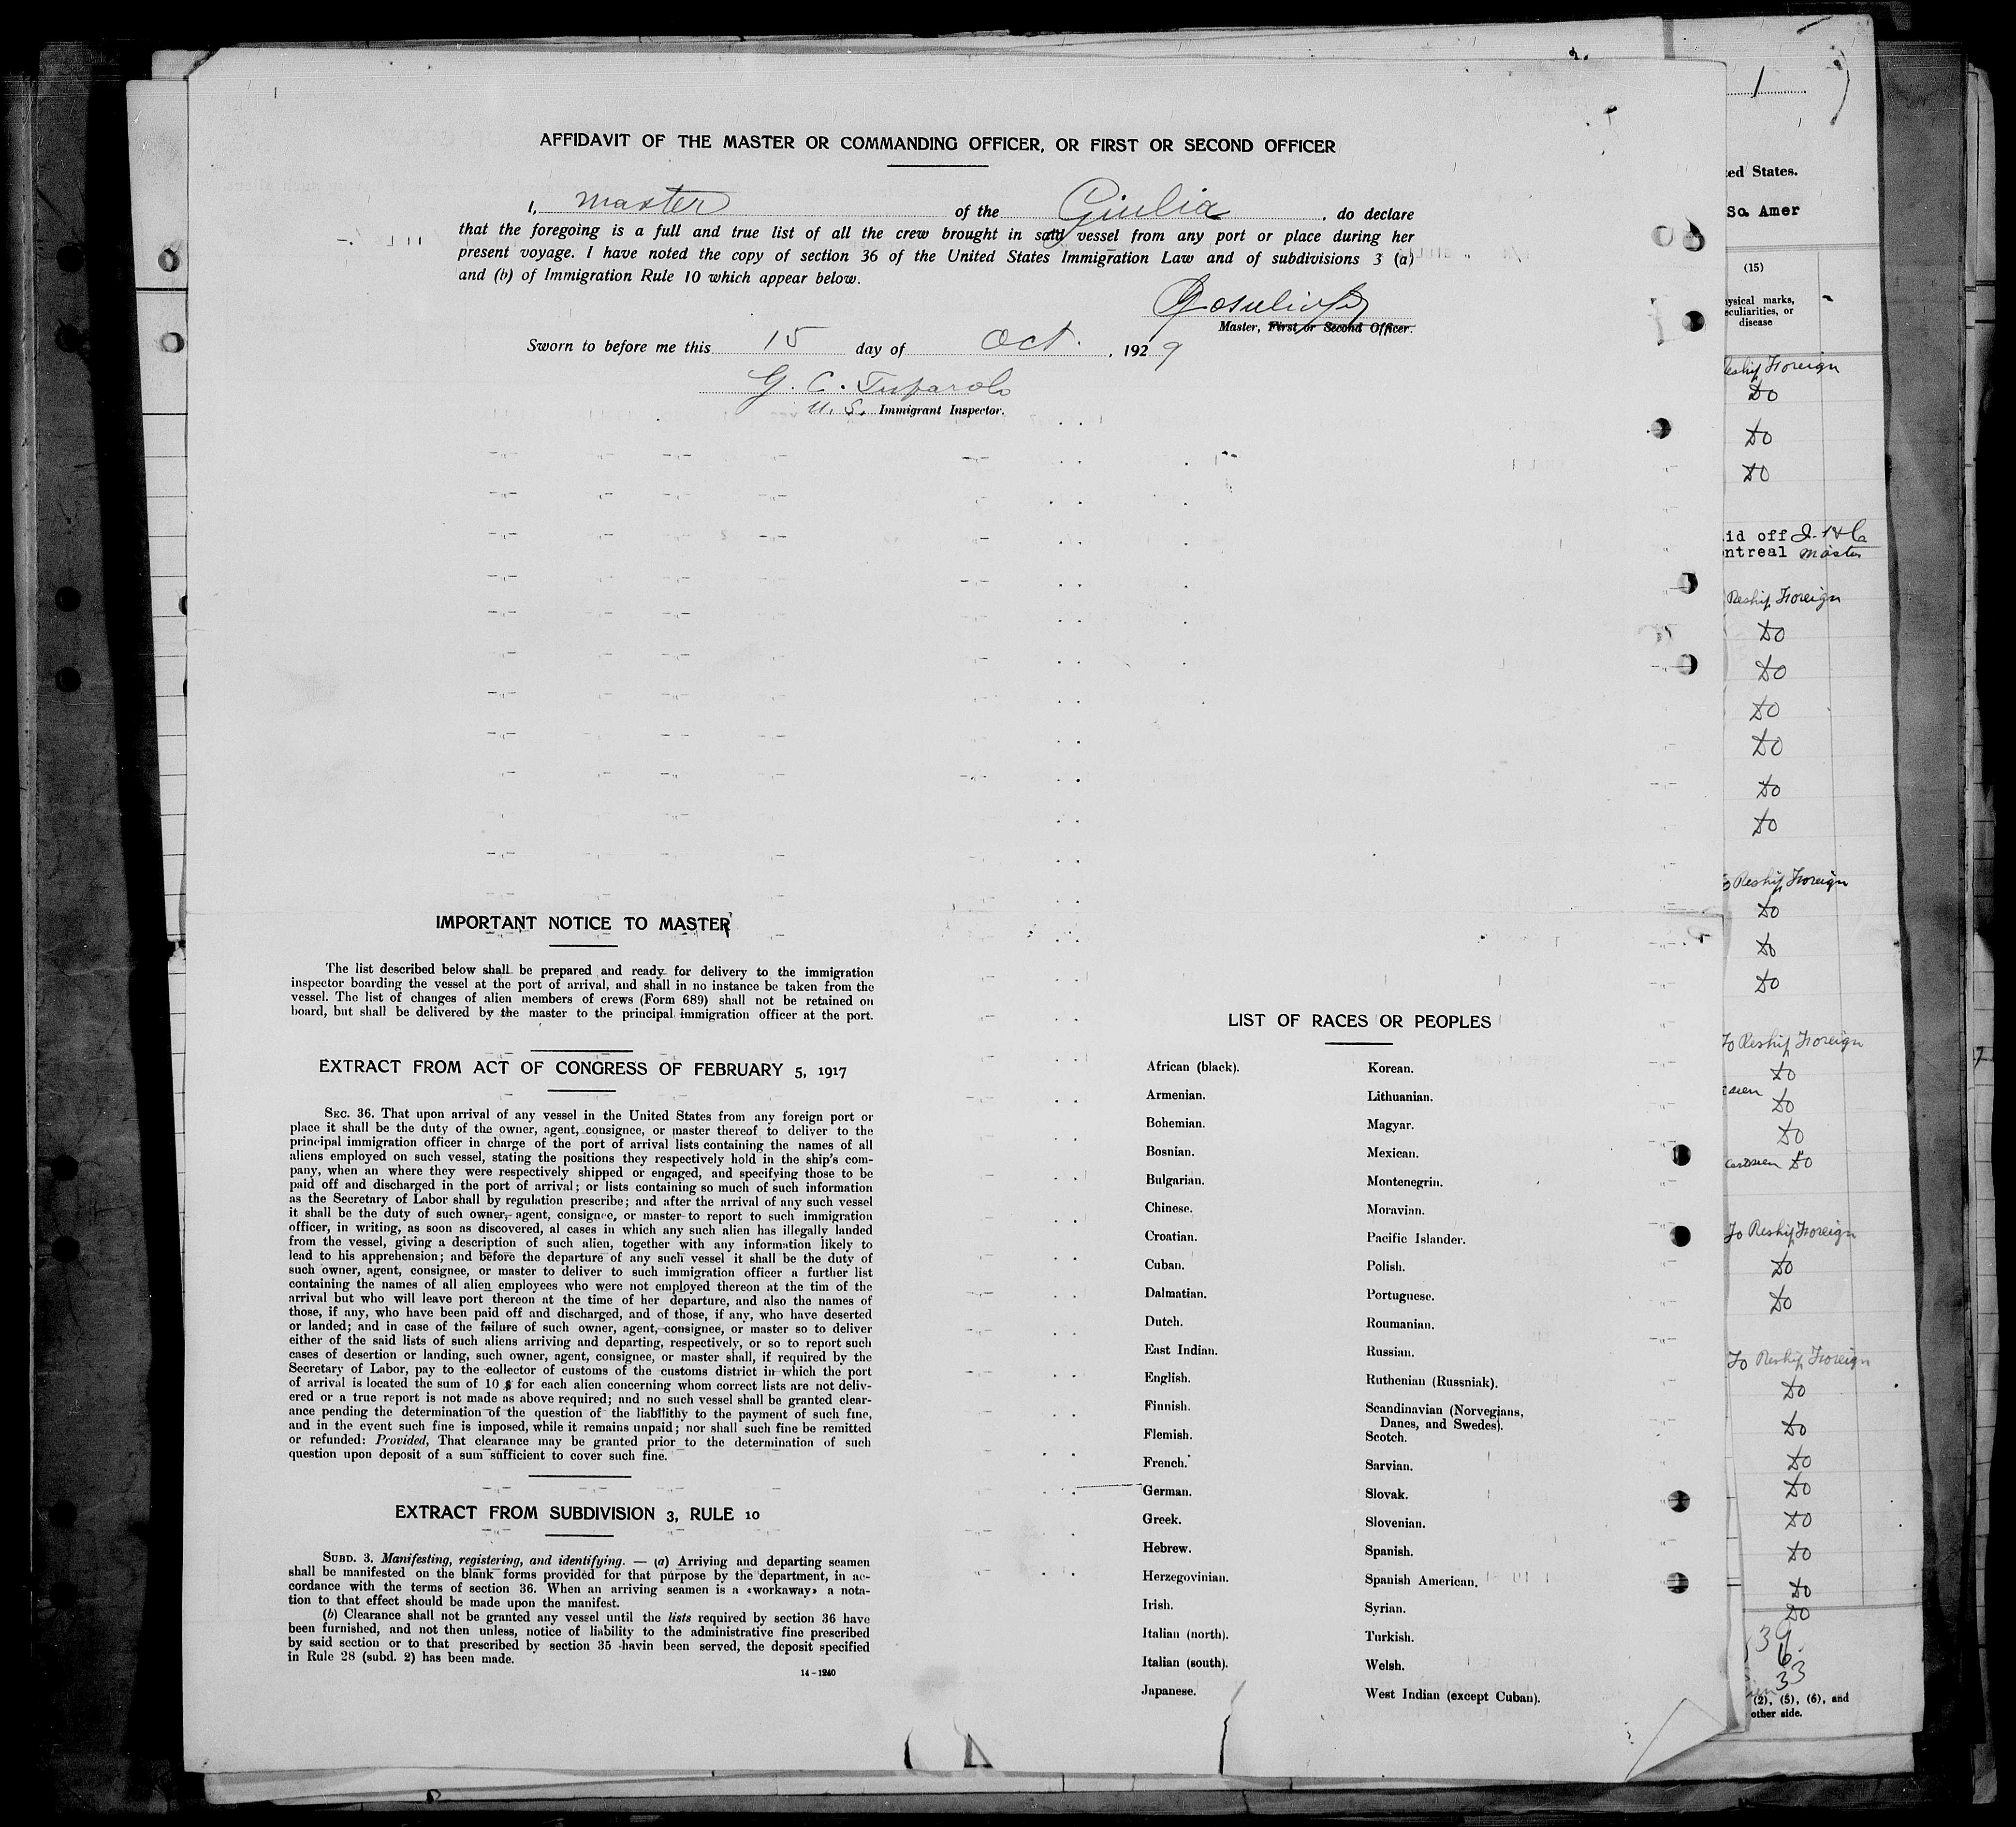 AFFIDAVIT OF THE MASTER OR COMMANDING OFFICER, OR FIRST OR SECOND OFFICER
I, master of the Giulia, do declare
that the foregoing is a full and true list of all the crew brought in said vessel from any port or place during her
present voyage. I have noted the copy of section 36 of the United States Immigration Law and of subdivisions 3 (a)
and (b) of Immigration Rule 10 which appear below.
Master, First or Second Officer.
Sworn to before me this 15 day of Oct. , 1929
G. C.
U. S. Immigrant Inspector.
IMPORTANT NOTICE TO MASTER
The list described below shall be prepared and ready for delivery to the immigration
inspector boarding the vessel at the port of arrival, and shall in no instance be taken from the
vessel. The list of changes of alien members of crews (Form 689) shall not be retained on
board, but shall be delivered by the master to the principal immigration officer at the port.
EXTRACT FROM ACT OF CONGRESS OF FEBRUARY 5, 1917
SEC. 36. That upon arrival of any vessel in the United States from any foreign port or
place it shall be the duty of the owner, agent, consignee, or master thereof to deliver to the
principal immigration officer in charge of the port of arrival lists containing the names of all
aliens employed on such vessel, stating the positions they respectively hold in the ship's com-
pany, when an where they were respectively shipped or engaged, and specifying those to be
paid off and discharged in the port of arrival; or lists containing so much of such information
as the Secretary of Labor shall by regulation prescribe; and after the arrival of any such vessel
it shall be the duty of such owner, agent, consignee, or master to report to such immigration
officer, in writing, as soon as discovered, al cases in which any such alien has illegally landed
from the vessel, giving a description of such alien, together with any information likely to
lead to his apprehension; and before the departure of any such vessel it shall be the duty of
such owner, agent, consignee, or master to deliver to such immigration officer a further list
containing the names of all alien employees who were not employed thereon at the tim of the
arrival but who will leave port thereon at the time of her departure, and also the names of
those, if any, who have been paid off and discharged, and of those, if any, who have deserted
or landed; and in case of the failure of such owner, agent, consignee, or master so to deliver
either of the said lists of such aliens arriving and departing, respectively, or so to report such
cases of desertion or landing, such owner, agent, consignee, or master shall, if required by the
Secretary of Labor, pay to the collector of customs of the customs district in which the port
of arrival is located the sum of 10 $ for each alien concerning whom correct lists are not deliv-
ered or a true report is not made as above required; and no such vessel shall be granted clear-
ance pending the determination of the question of the liabilithy to the payment of such fine,
and in the event such fine is imposed, while it remains unpaid; nor shall such fine be remitted
or refunded: Provided, That clearance may be granted prior to the determination of such
question upon deposit of a sum sufficient to cover such fine.
EXTRACT FROM SUBDIVISION 3, RULE 10
SUBD. 3. Manifesting, registering, and identifying. — (a) Arriving and departing seamen
shall be manifested on the blank forms provided for that purpose by the department, in ac-
cordance with the terms of section 36. When an arriving seamen is a «workaway» a nota-
tion to that effect should be made upon the manifest.
(b) Clearance shall not be granted any vessel until the lists required by section 36 have
been furnished, and not then unless, notice of liability to the administrative fine prescribed
by said section or to that prescribed by section 35 havin been served, the deposit specified
in Rule 28 (subd. 2) has been made.
14-1240
LIST OF RACES OR PEOPLES
African (black).
Armenian.
Bohemian.
Bosnian.
Bulgarian.
Chinese.
Croatian.
Cuban.
Dalmatian.
Dutch.
East Indian.
English.
Finnish.
Flemish.
French.
German.
Greek.
Hebrew.
Herzegovinian.
Irish.
Italian (north).
Italian (south).
Japanese.
Korean.
Lithuanian.
Magyar.
Mexican.
Montenegrin.
Moravian.
Pacific Islander.
Polish.
Portuguese.
Roumanian.
Russian.
Ruthenian (Russniak).
Scandinavian (Norvegians,
Danes, and Swedes).
Scotch.
Sarvian.
Slovak.
Slovenian.
Spanish.
Spanish American.
Syrian.
Turkish.
Welsh.
West Indian (except Cuban).
1
ted States.
So. Amer
(15)
ysical marks,
eculiarities, or
disease
Reship Foreign
Do
Do
Do
id off
ntreal master
Reship Foreign
Do
Do
Do
Do
Do
Do
To Reship Foreign
Do
Do
Do
To Reship Foreign
Do
Do
Do
Do
To Reship Foreign
Do
Do
To Reship Foreign
Do
Do
Do
Do
Do
Do
Do
Do
39
6
33
(2), (5), (6), and
other side.